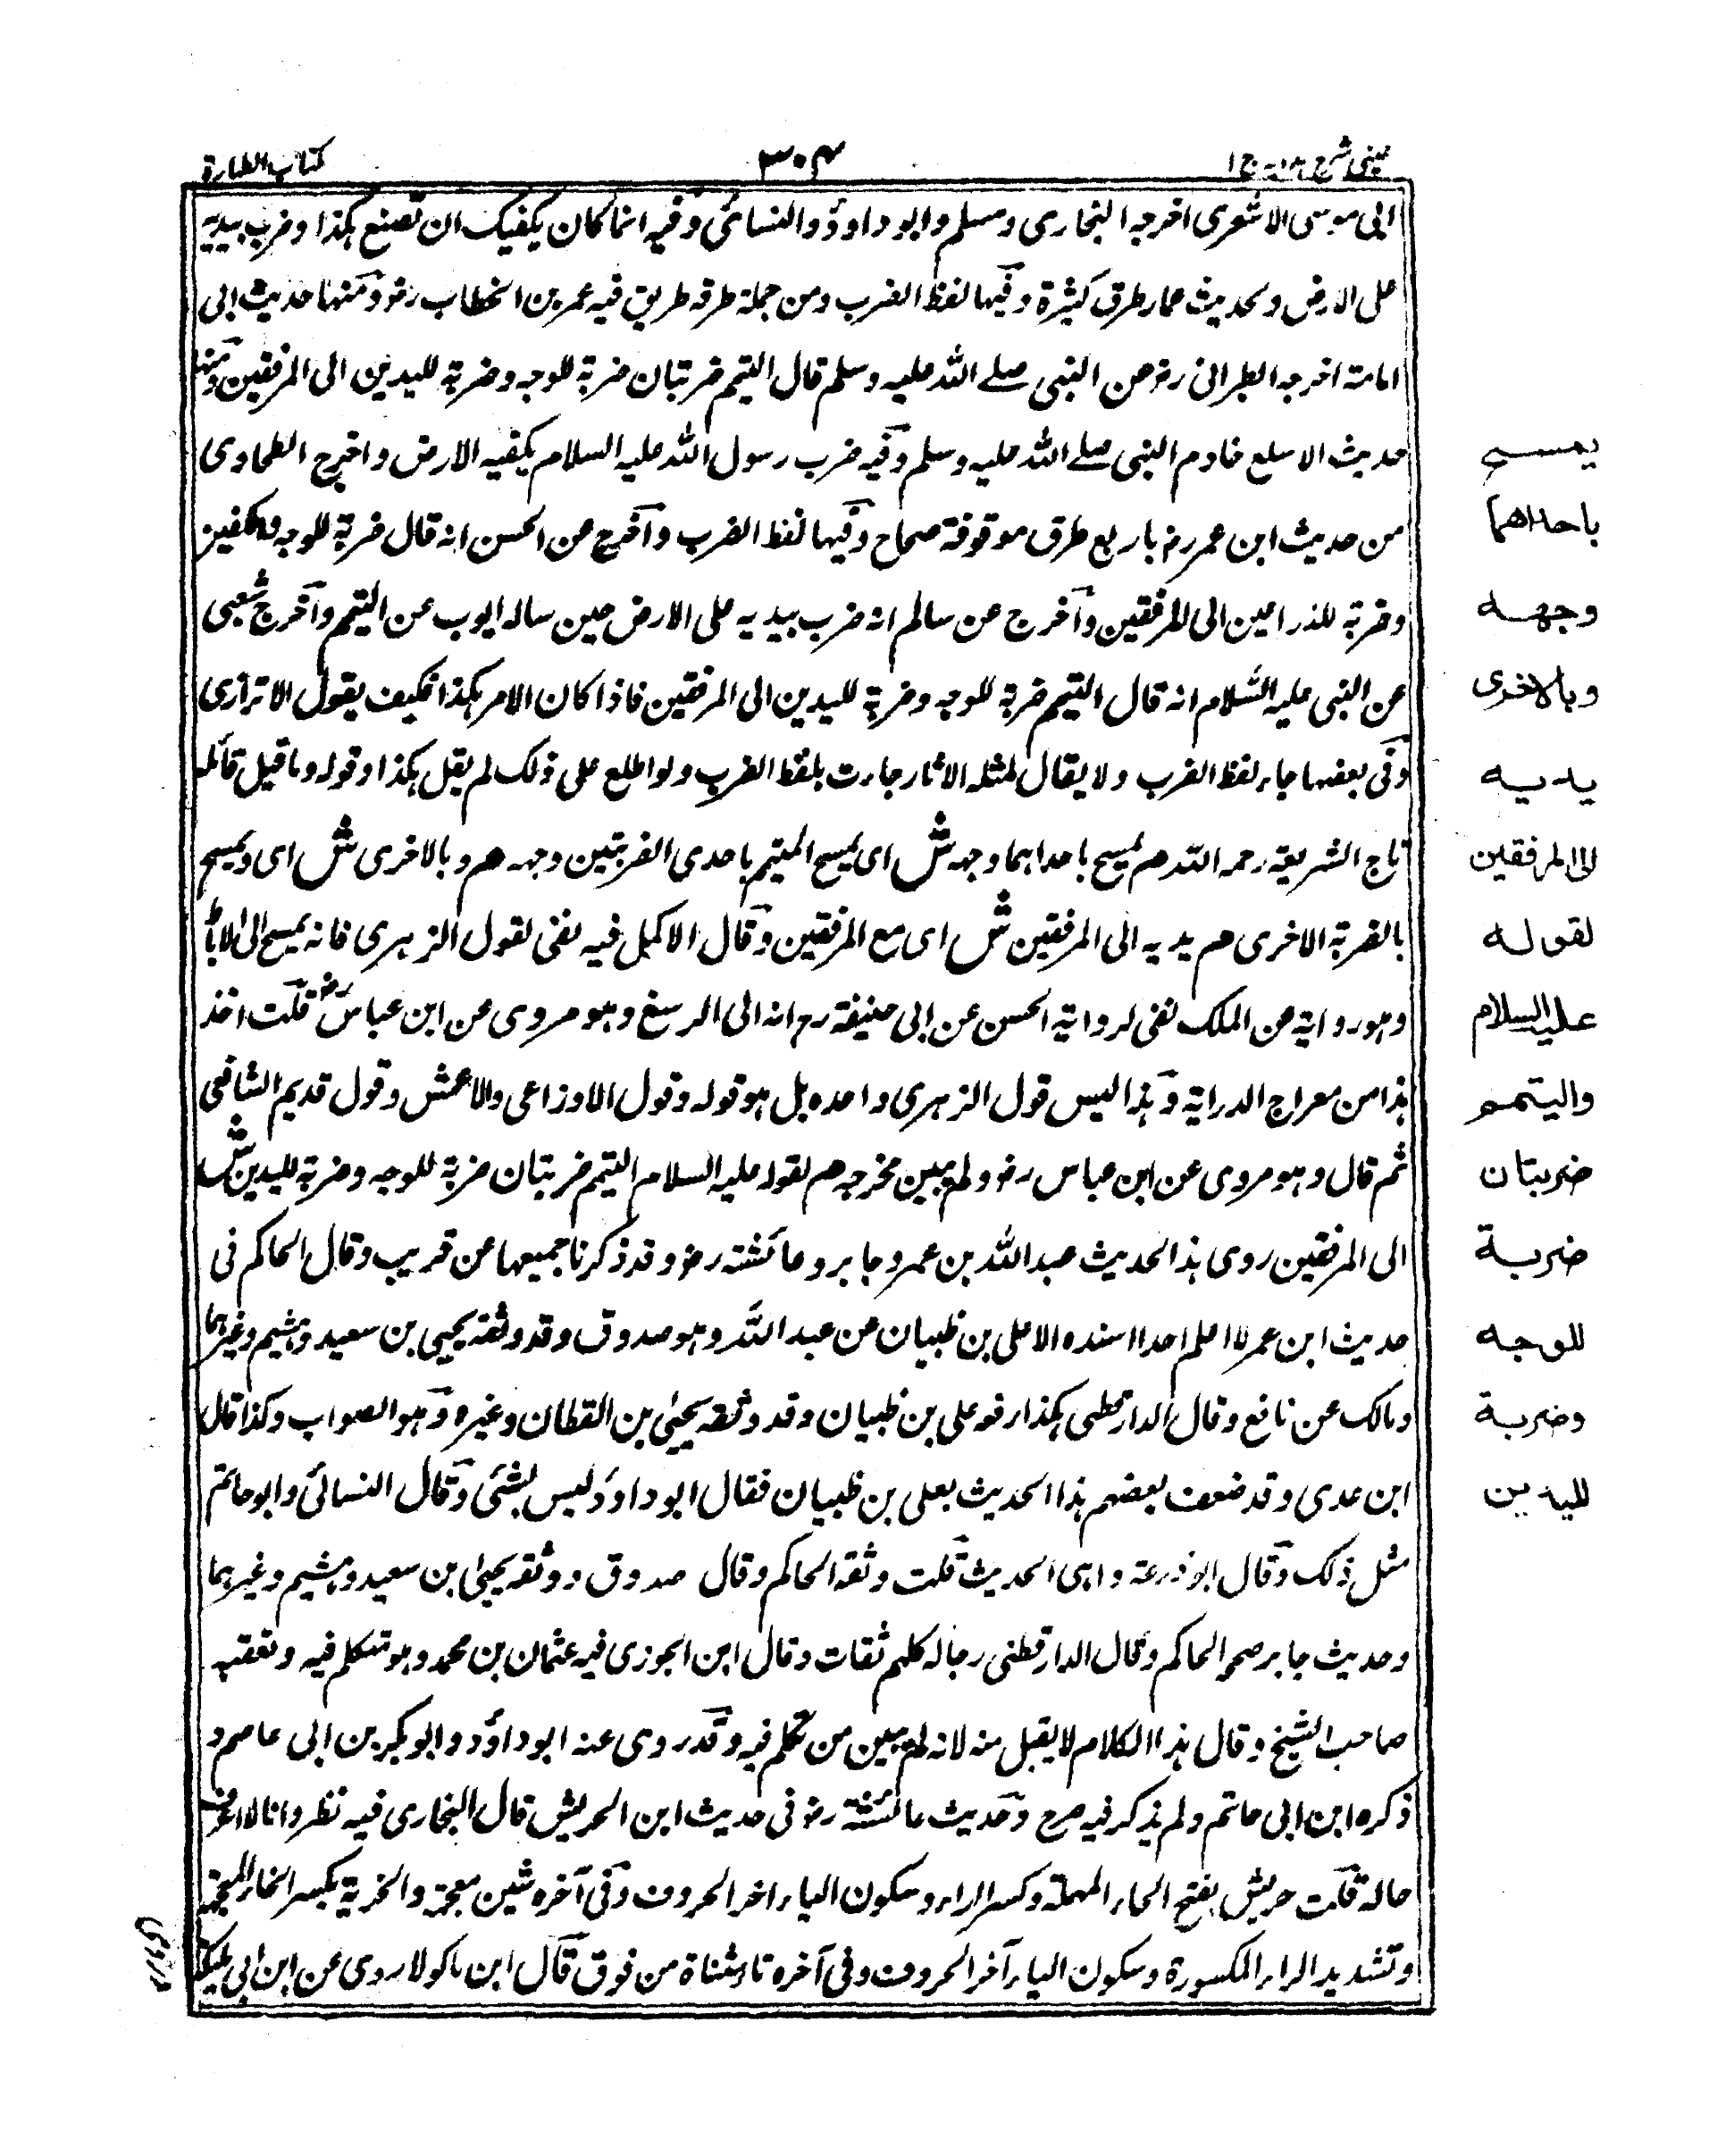 عينى شرح هدايه ج ا
٣٠٤
كتاب الطهارة
ابى موسى الاشعرى اخرجه البخارى ومسلم وابو داؤد والنسائى وفيه انما كان يكفيك ان تصنع هكذا وضرب بيديه
على الارض ولحديث عمار طرق كثيرة وفيها لفظ الضرب ومن جملة طرقه طريق فيه عمر بن الخطاب رضو ومنها حديث ابى
امامة اخرجه الطبرانى رضو عن النبى صلے الله عليه وسلم قال التيمم ضربتان ضربة للوجه وضربة لليدين الى المرفقين ومنها
حديث الاسلع خادم النبى صلے الله عليه وسلم وفيه ضرب رسول الله عليه السلام بكفيه الارض واخرج الطحاوى
من حديث ابن عمر رضو باربع طرق موقوفة صحاح وفيها لفظ الضرب واخرج عن الحسن انه قال ضربة للوجه والكفين
وضربة للذراعين الى المرفقين واخرج عن سالم انه ضرب بيديه على الارض حين ساله ايوب عن التيمم واخرج شعبى
عن النبى عليه السلام انه قال التيمم ضربة للوجه وضربة لليدين الى المرفقين فاذا كان الامر هكذا فكيف يقول الاترازى
وفى بعضها جاء لفظ الضرب ولا يقال لمثله الاثار جاءت بلفظ الضرب ولو اطلع على ذلك لم يقل هكذا وقوله وما قيل قائله
تاج الشريعة رحمه الله هم يمسح باحداهما وجهه ش اى يمسح المتيمم باحدى الضربتين وجهه هم وبالاخرى ش اى ويمسح
بالضربة الاخرى هم يديه الى المرفقين ش اى مع المرفقين وقال الاكمل فيه نفى لقول الزهرى فانه يمسح الى الاباط
وهو رواية عن الملك نفى لرواية الحسن عن ابى حنيفة رح انه الى الرسغ وهو مروى عن ابن عباس رضو قلت اخذ
هذا من معراج الدراية وهذا ليس قول الزهرى واحده بل هو قوله وقول الاوزاعى والاعمش وقول قديم الشافعى
ثم قال وهو مروى عن ابن عباس رضو ولم يبين مخرجه هم لقوله عليه السلام التيمم ضربتان ضربة للوجه وضربة لليدين ش
الى المرفقين روى هذا الحديث عبد الله بن عمر وجابر وعائشة رضو وقد ذكرنا جميعها عن قريب وقال الحاكم فى
حديث ابن عمر لا اعلم احدا اسنده الا على بن ظبيان عن عبد الله وهو صدوق وقد وثقه يحيى بن سعيد وهشيم وغيرهما
ومالك عن نافع وقال الدارقطنى هكذا رفعه على بن ظبيان وقد وثقه يحيى بن القطان وغيره وهو الصواب وكذا قال
ابن عدى وقد ضعف بعضهم هذا الحديث بعلى بن ظبيان فقال ابو داؤد ليس بشئى وقال النسائى وابو حاتم
مثل ذلك وقال ابو زرعة واهى الحديث قلت وثقه الحاكم وقال صدوق ووثقه يحيى بن سعيد وهشيم وغيرهما
وحديث جابر صححه الحاكم وقال الدارقطنى رجاله كلهم ثقات وقال ابن الجوزى فيه عثمان بن محمد وهو متكلم فيه وتعقبه
صاحب الشيخ وقال هذا الكلام لا يقبل منه لانه لم يبين من تكلم فيه وقد روى عنه ابو داؤد وابو بكر بن ابى عاصم و
ذكره ابن ابى حاتم ولم يذكر فيه جرح وحديث عائشة رضو فى حديث ابن الحريش قال البخارى فيه نظر وانا لا اعرف
حاله قلت حريش بفتح الحاء المهملة وكسر الراء وسكون الياء اخر الحروف وفى آخره شين معجمة والخريت بكسر الخاء المعجمة
وتشديد الراء المكسورة وسكون الياء آخر الحروف وفى آخره تاء مثناة من فوق قال ابن ماكولا روى عن ابن ابى مليكة
يمسح
باحداهما
وجهه
وبالاخرى
يديه
الى المرفقين
لقوله
عليه السلام
والتيمم
ضربتان
ضربة
للوجه
وضربة
لليدين